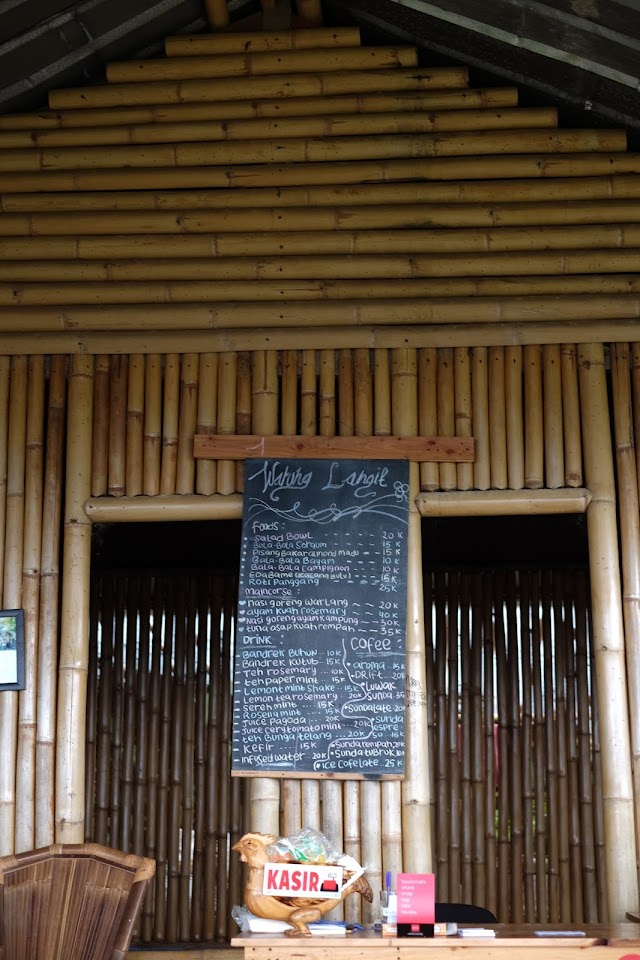 Warung Langit
Foods :
Salad Bowl - - - 20 K
Bola-Bola Sorgum - - - 15 K
Pisang Bakar almond madu - - 15 K
Bola-Bola Bayam - - - 10 K
Bola-Bola Campignon - - 10 K
Edabame (Kacang Bulu) - - 15 K
Roti Panggang 25K
Maincorse :
nasi goreng warlang ~ ~ 20K
ayam kuah rosemary 40K
nasi goreng ayam kampung - - - 30K
tuna asap kuah rempah - - - 35K
DRINK :
Bandrek Buhun .. 10K
Bandrek Kutub .. 15K
Teh rosemary .. 10K
teh papermint .. 15K
Lemont mint Shake .. 15K
Lemon tea rosemary .. 20K
Sereh mint .... 15K
Rosella mint .... 15K
Juice Pagoda .. 20K
Juice cery tomato mint .. 20K
teh Bunga telang .. 20K
Kefir .... 15K
infused water .. 20K
COFEE :
aroma .. 15K
DRift .. 20K
Luwak
Sunda 35
Sunda late .. 20K
Sunda
espre
so .. 16K
Sunda rempah 20K
Sunda tubruk 10K
ice Cofe late .. 25K
KASIR